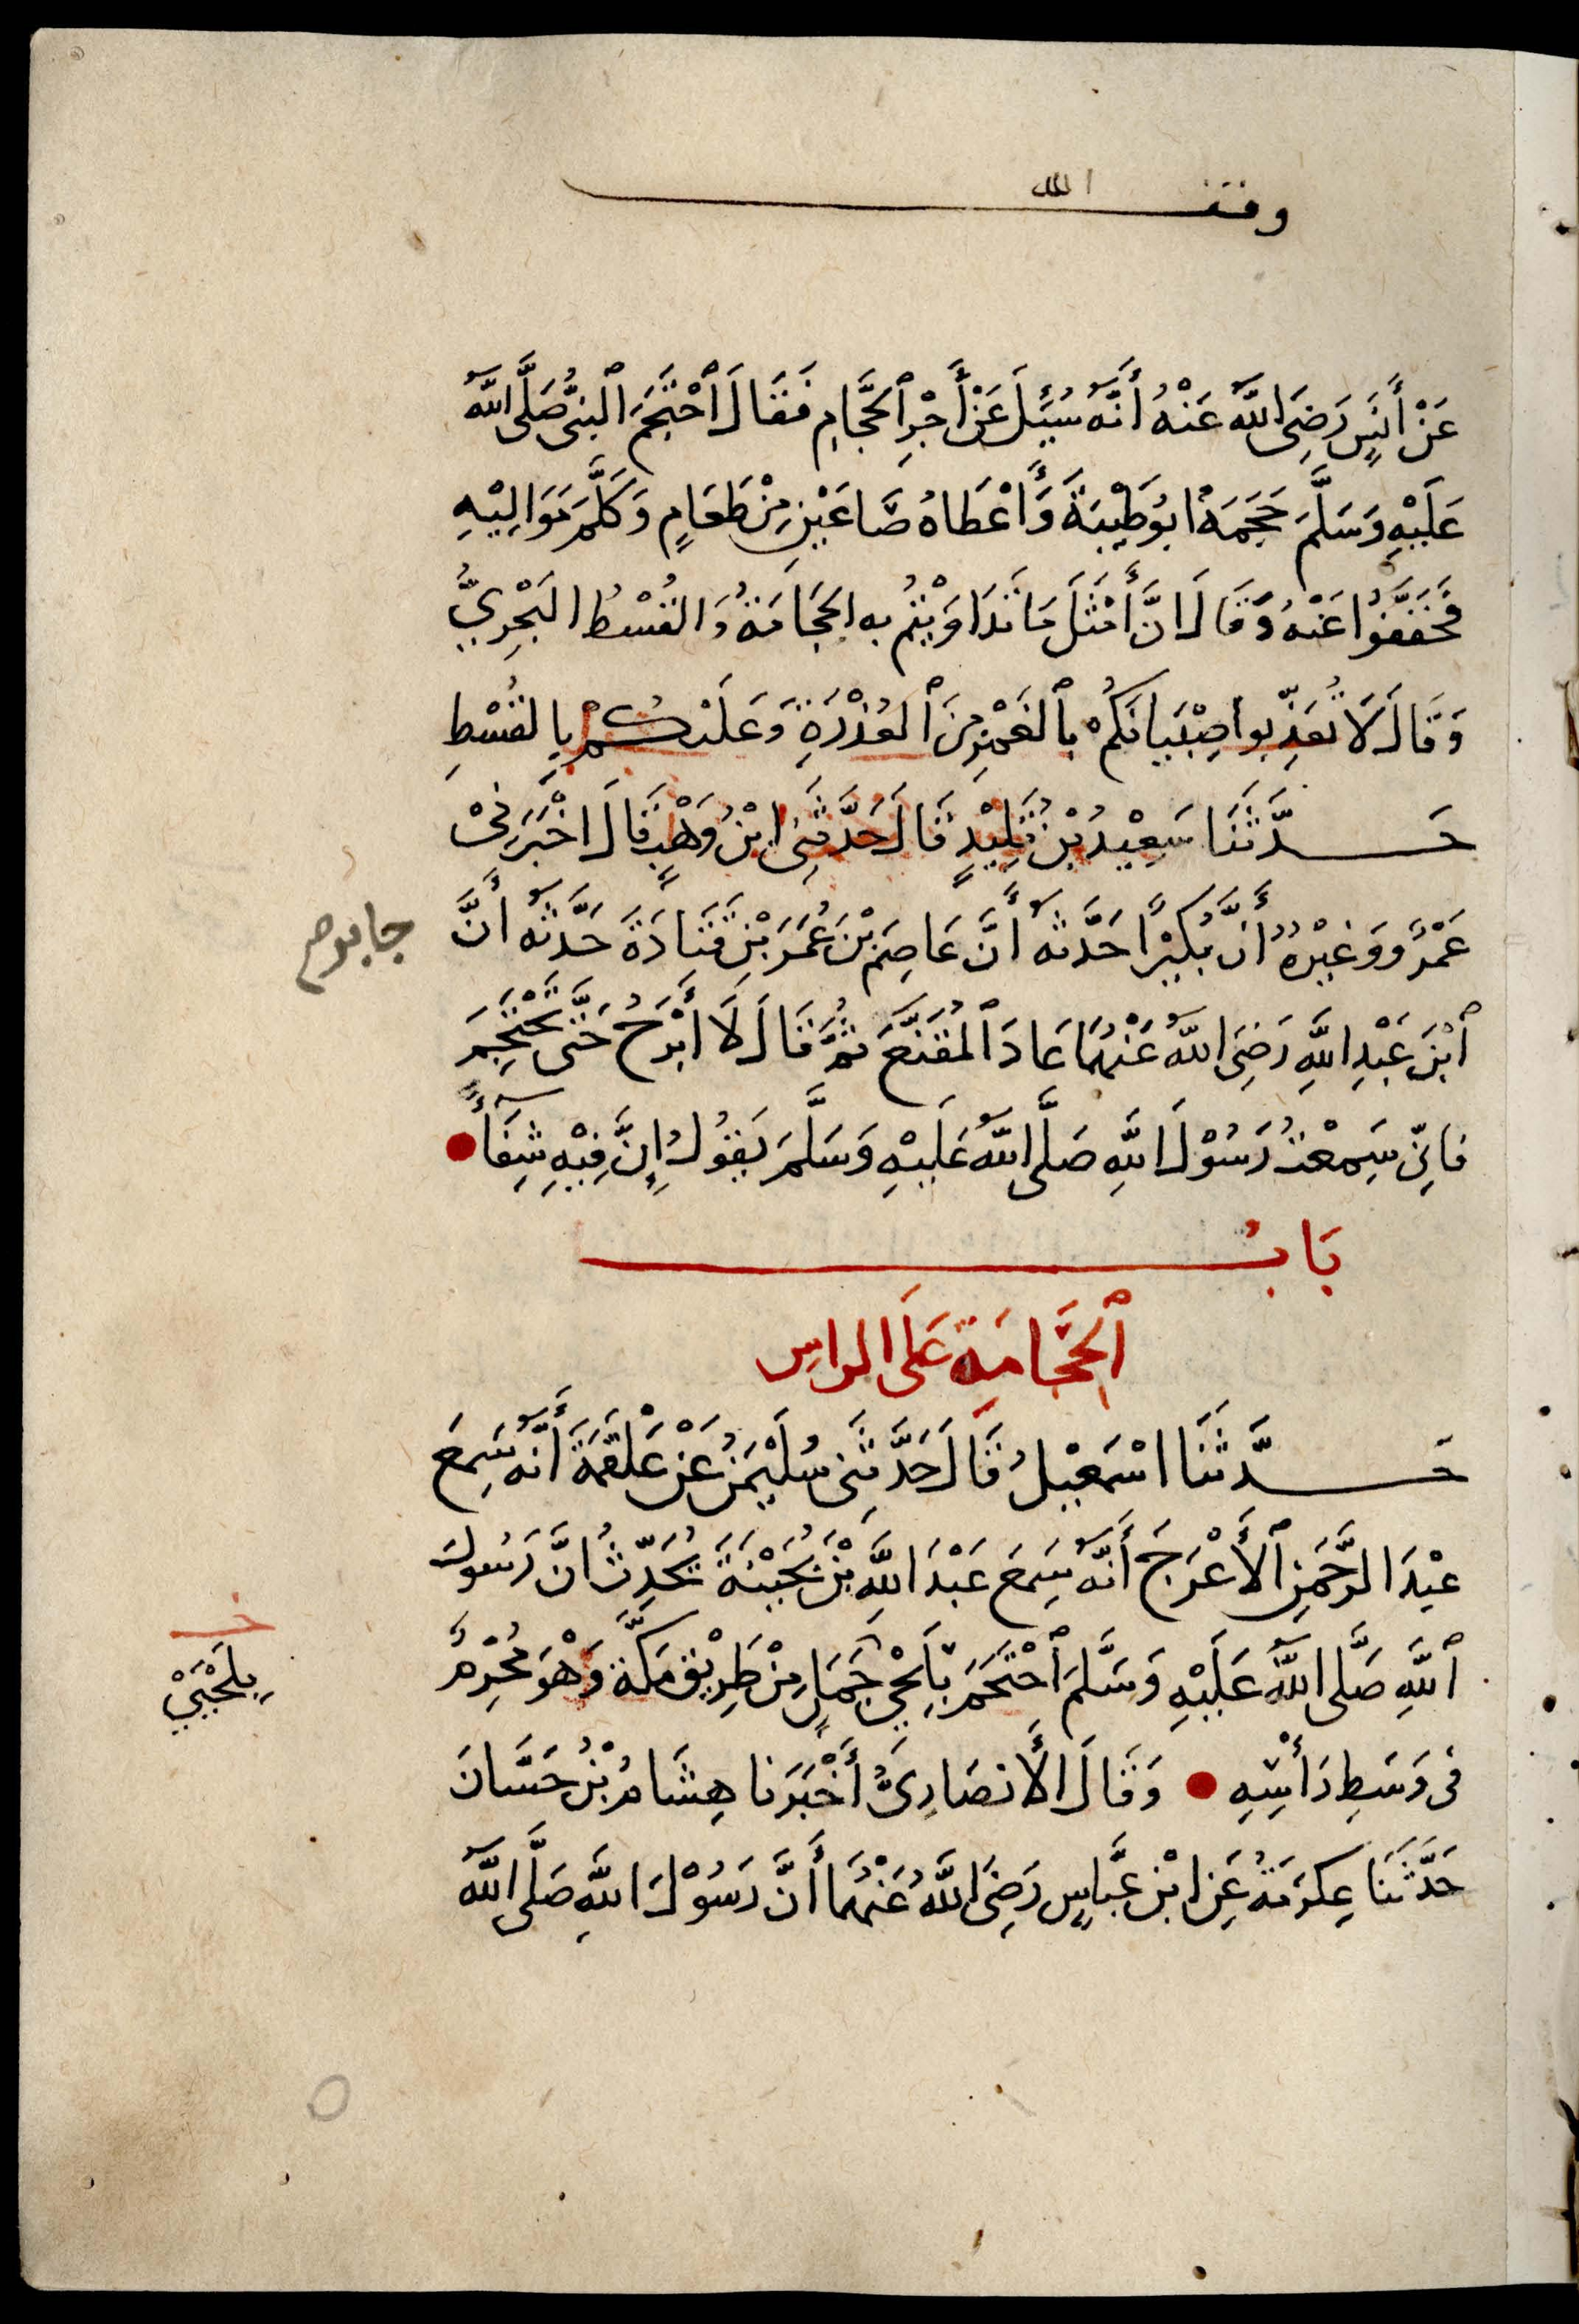 وقف الله
عَنْ أَنَسٍ رَضِيَ اللَّهُ عَنْهُ أَنَّهُ سُئِلَ عَنْ أَجْرِ ٱلحَجَّامِ فَقَالَ ٱحْتَجَمَ النَّبِيُّ صَلَّى اللَّهُ
عَلَيْهِ وَسَلَّمَ حَجَمَهُ ابُو طَيْبَةَ وَأَعْطَاهُ صَاعَيْنِ مِنْ طَعَامٍ وَكَلَّمَ مَوَالِيْهِ
فَخَفَّفُوا عَنْهُ وَقَالَ انَّ أَمْثَلَ مَا تَدَاوَيْتُمْ بِهِ الحِجَامَةُ وَالقُسْطُ البَحْرِيُّ
وَقَالَ لَا تُعَذِّبُوا صِبْيَانَكُمْ بِٱلغَمْزِ مِنَ ٱلعُذْرَةِ وَعَلَيْكُمْ بِالقُسْطِ
حَدَّثَنَا سَعِيْدُ بْنُ تَلِيْدٍ قَالَ حَدَّثَنِي ابْنُ وَهْبٍ قَالَ اخْبَرَنِيْ
عَمْرٌو وَغَيْرُهُ أَنَّ بُكَيْرًا حَدَّثَهُ أَنَّ عَاصِمَ بْنَ عُمَرَ بْنِ قَتَادَةَ حَدَّثَهُ أَنَّ
جابر صح
ٱبْنَ عَبْدِ اللَّهِ رَضِيَ اللَّهُ عَنْهُمَا عَادَ ٱلمُقَنَّعَ ثُمَّ قَالَ لَا أَبْرَحُ حَتَّى تَحْتَجِمَ
فَإِنِّي سَمِعْتُ رَسُوْلَ اللَّهِ صَلَّى اللَّهُ عَلَيْهِ وَسَلَّمَ يَقُولُ إِنَّ فِيْهِ شِفَآءً
بَابُ
ٱلحِجَامَةِ عَلَى الراسِ
حَدَّثَنَا اسْمَعِيْلُ قَالَ حَدَّثَنِي سُلَيْمَنُ عَنْ عَلْقَمَةَ أَنَّهُ سَمِعَ
عَبْدَ الرَّحْمَنِ ٱلأَعْرَجَ أَنَّهُ سَمِعَ عَبْدَ اللَّهِ بْنَ بُحَيْنَةَ يُحَدِّثُ انَّ رَسُولَ
ٱللَّهِ صَلَّى اللَّهُ عَلَيْهِ وَسَلَّمَ ٱحْتَجَمَ بِلَحْيِ جَمَلٍ مِنْ طَرِيْقِ مَكَّةَ وَهْوَ مُحْرِمٌ
خـ
بِلَحْيَيْ
فِى وَسَطِ رَأْسِهِ وَقَالَ الأَنصَارِيُّ أَخْبَرَنَا هِشَامُ بْنُ حَسَّانَ
حَدَّثَنَا عِكرَمَةُ عَنِ ابْنِ عَبَّاسٍ رَضِيَ اللَّهُ عَنْهُمَا أَنَّ رَسُوْلَ اللَّهِ صَلَّى اللَّهُ